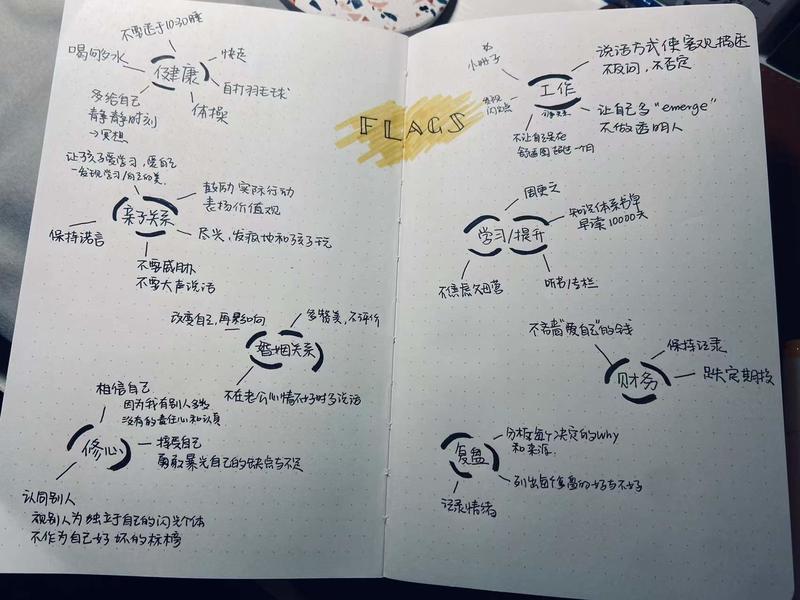 FLAGS
不要迟于10:30睡
喝够多水
健康
快走
自打羽毛球
体操
多给自己
静静时刻
→冥想
让孩子爱学习，要自己
一发现学习/自己的美
亲子关系
鼓励实际行动
表扬价值观
保持诺言
尽兴，发疯地和孩子玩
不要威胁
不要大声说话
改变自己，再影响
多赞美，不评价
婚姻关系
不在老公心情不好时多说话
相信自己
因为我有别人多数
没有的责任心和认真
修心
接受自己
勇敢暴光自己的缺点与不足
认同别人
视别人为独立于自己的闪光个体
不作为自己好坏的标榜
小册子
发现
闪光点
工作
说话方式使客观描述
不反问，不否定
让自己多“emerge”
不做透明人
不让自己呆在
舒适圈超过一个月
周更文
学习/提升
知识体系书单
早读10000天
不焦虑不内营
听书/专栏
不吝啬“爱自己”的钱
财务
保持记录
定期投
分析每个决定的why
和来源
复盘
列出每个复盘的好与不好
记录情绪